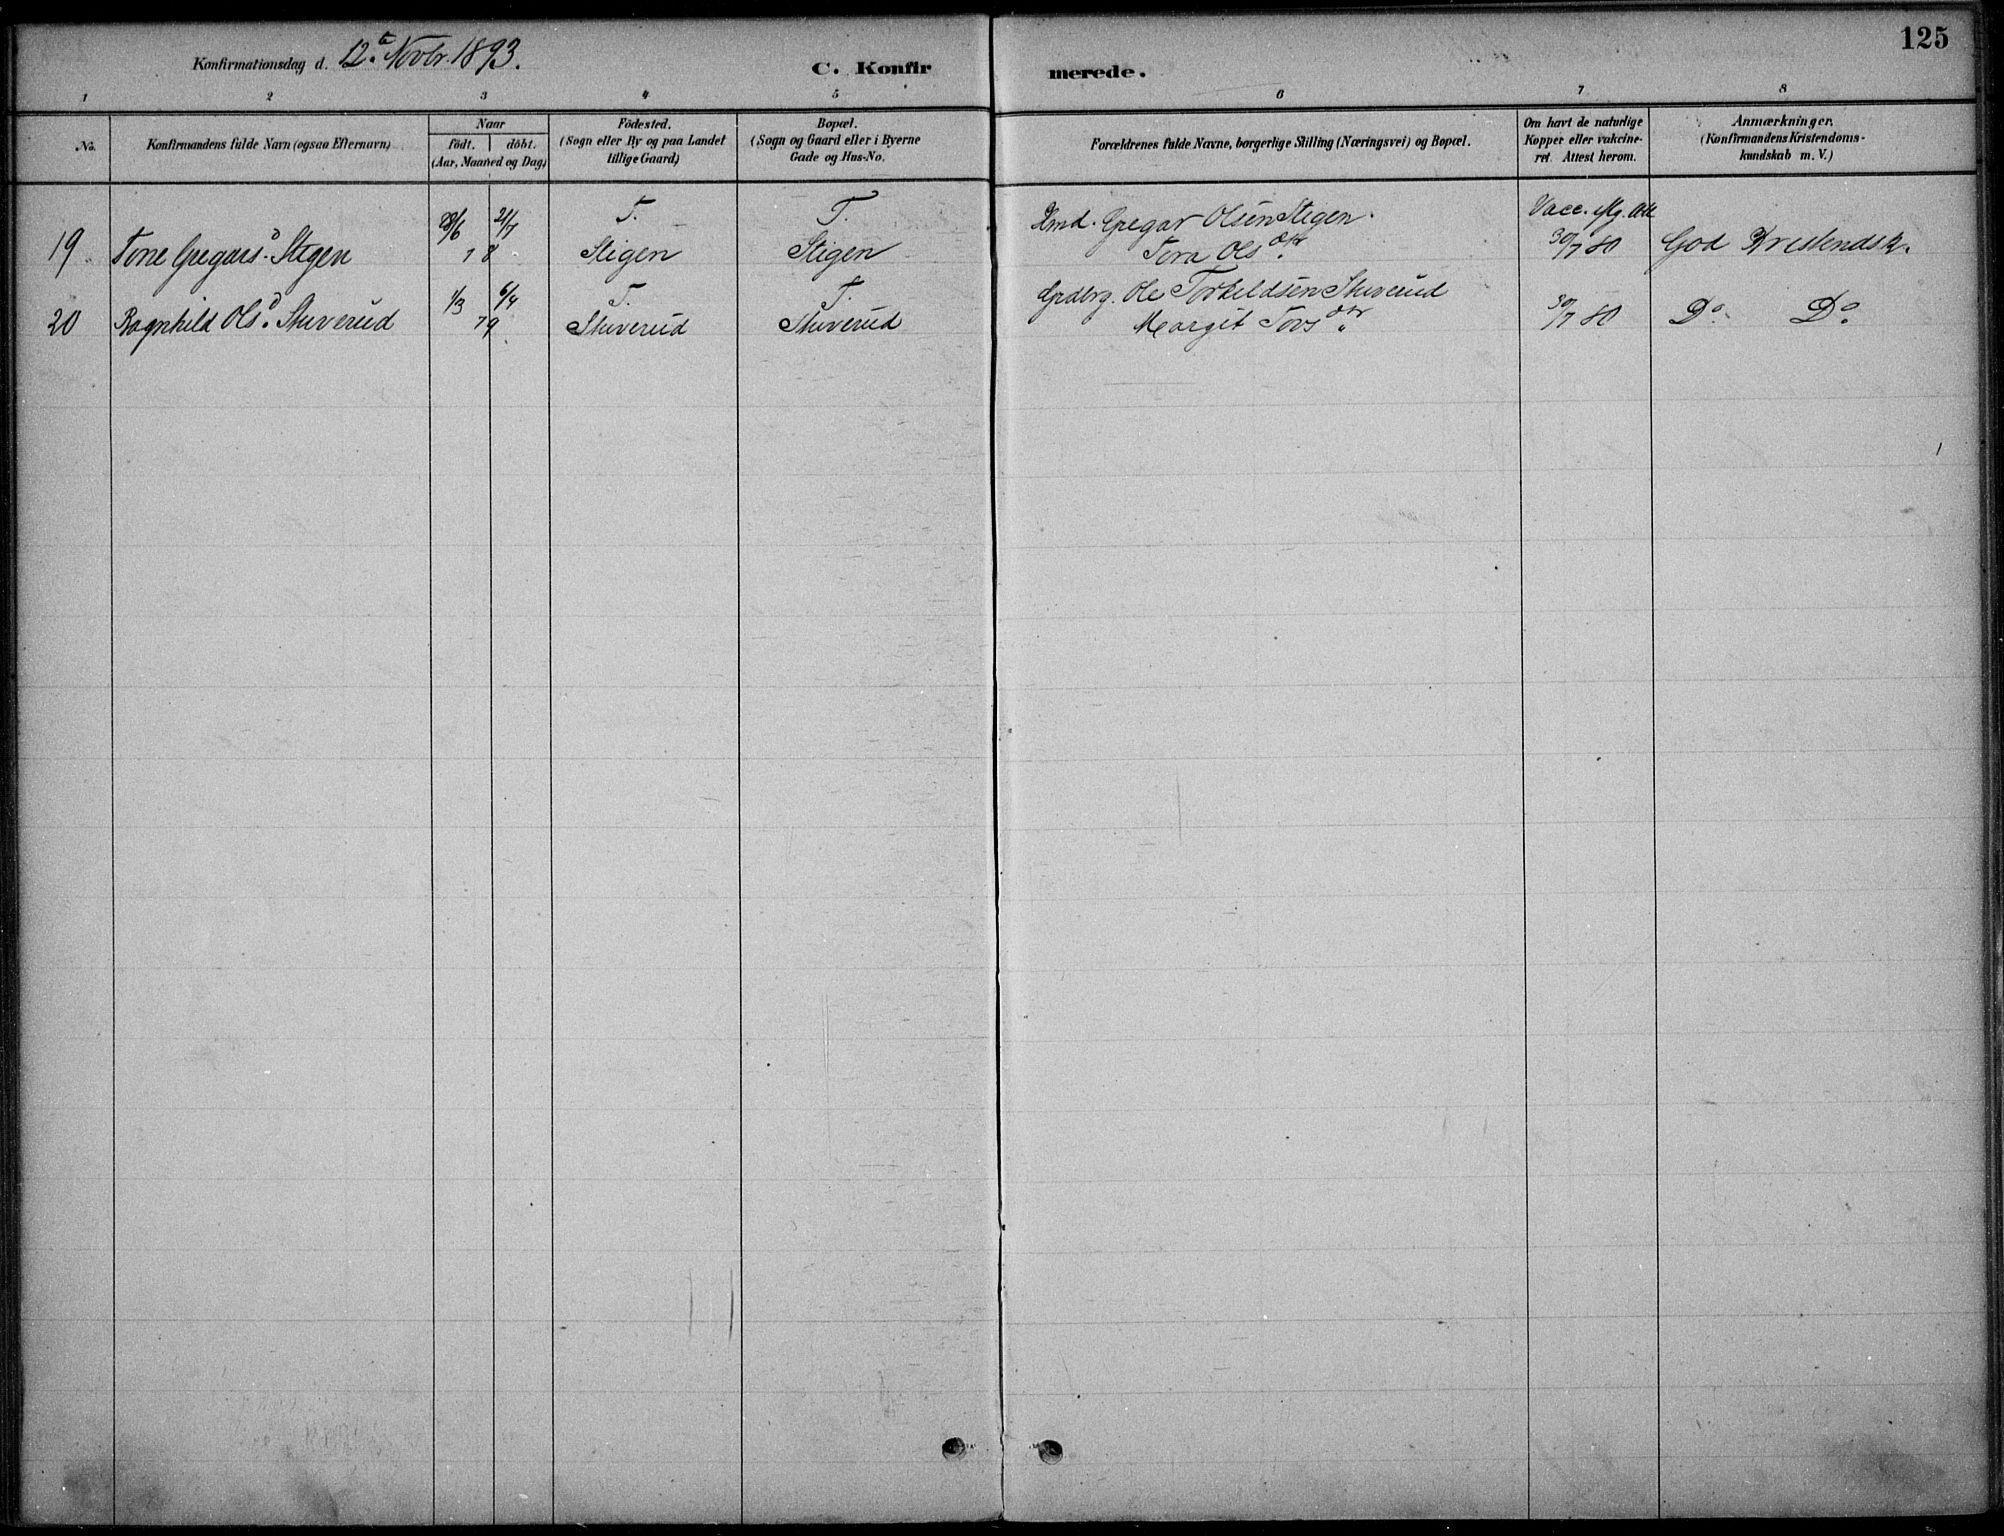 125
Konfirmationsdag d. 12te Novbr. 1893.
C. Konfirmerede.
1 2 3 4 5 6 7 8
No.
Konfirmandens fulde Navn (ogsaa Efternavn)
Naar
födt. döbt.
(Aar, Maaned og Dag)
Födested.
(Sogn eller By og paa Landet
tillige Gaard)
Bopæl.
(Sogn og Gaard eller i Byerne
Gade og Hus-No.
Forældrenes fulde Navne, borgerlige Stilling (Næringsvei) og Bopæl.
Om havt de naturlige
Kopper eller vakcine-
ret. Attest herom.
Anmærkninger.
(Konfirmandens Kristendoms-
kundskab m. V.)
28/6 21/7 T. T. Hmd. Gregar Olsen Stigen. Vacc. Mg. Att
19 Tone Gregarsd. Stigen 78 Stigen Stigen Tora Olsdtr. 30/7 80 God Kristendsk.
1/3 6/4 T. T. Grdbrg. Ole Torkildsen Stuverud
20 Ragnhild Olsd. Stuverud 79 Stuverud Stuverud Margit Tovsdtr. 30/7 80 Do. Do.